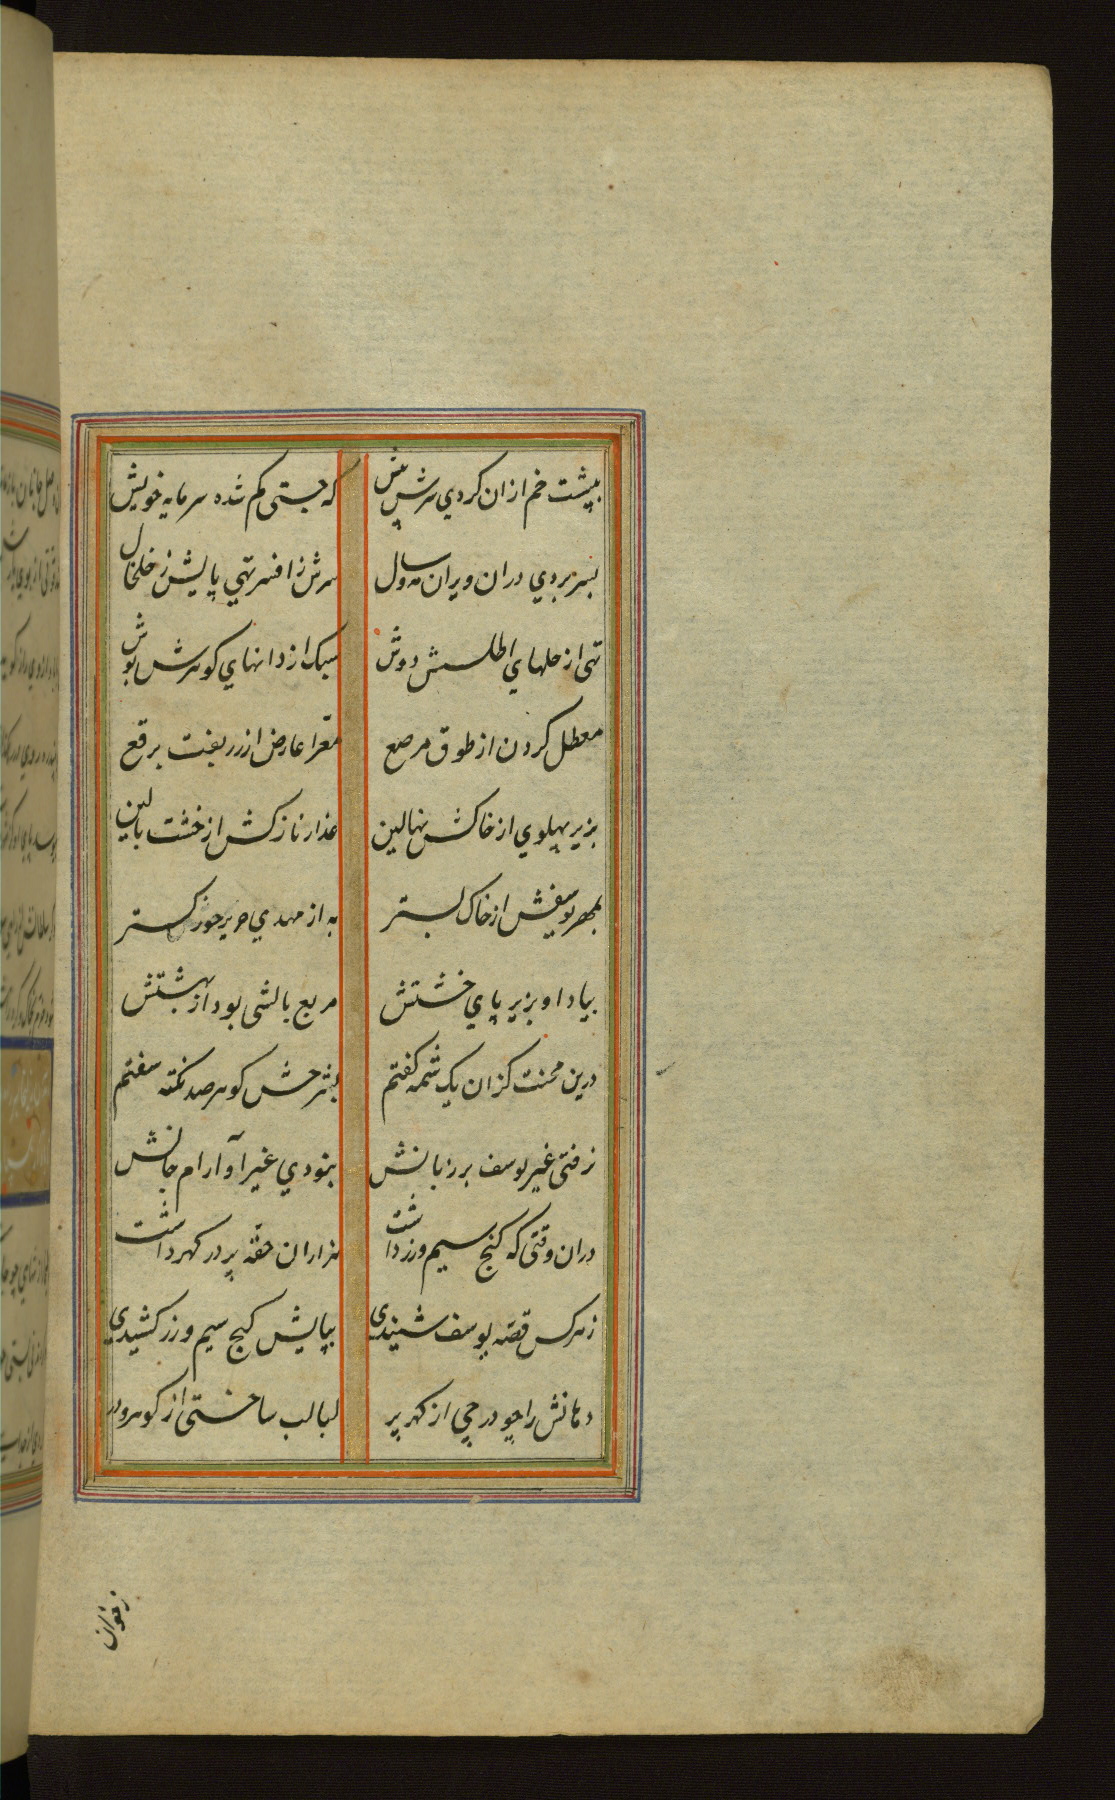 بپشت خم ازان کردي سرش پیش که جستی کم شده سرمایه خویش
بسر بردي دران ویران مه و سال سرش ز افسر تهي پایش ز خلخال
تهی از حلهاي اطلسش دوش سبک از دانهاي کوهرش کوش
معطل کردن از طوق مرصع معرا عارض از زربفت برقع
بزیر پهلوي از خاکش نهالین عذار نازکش از خشت بالین
بمهر یوسفش از خاک بستر به از مهدي حریر حور کستر
بیاد او بزیر پاي خشتش مربع بالشی بود از بهشتش
درین محنت کزان یک شمه کفتم بشرحش کوهر صد نکته سفتم
نرفتی غیر یوسف بر زبانش بنودي غیر او آرام جانش
دران وقتی که کنج سیم و زر داشت هزاران حقه پر در کهر داشت
ز هر کس قصه یوسف شنیدی بپایش کنج سیم و زر کشیدي
دهانش را چو درجي از کهر پر لبالب ساختی از کوهر و در